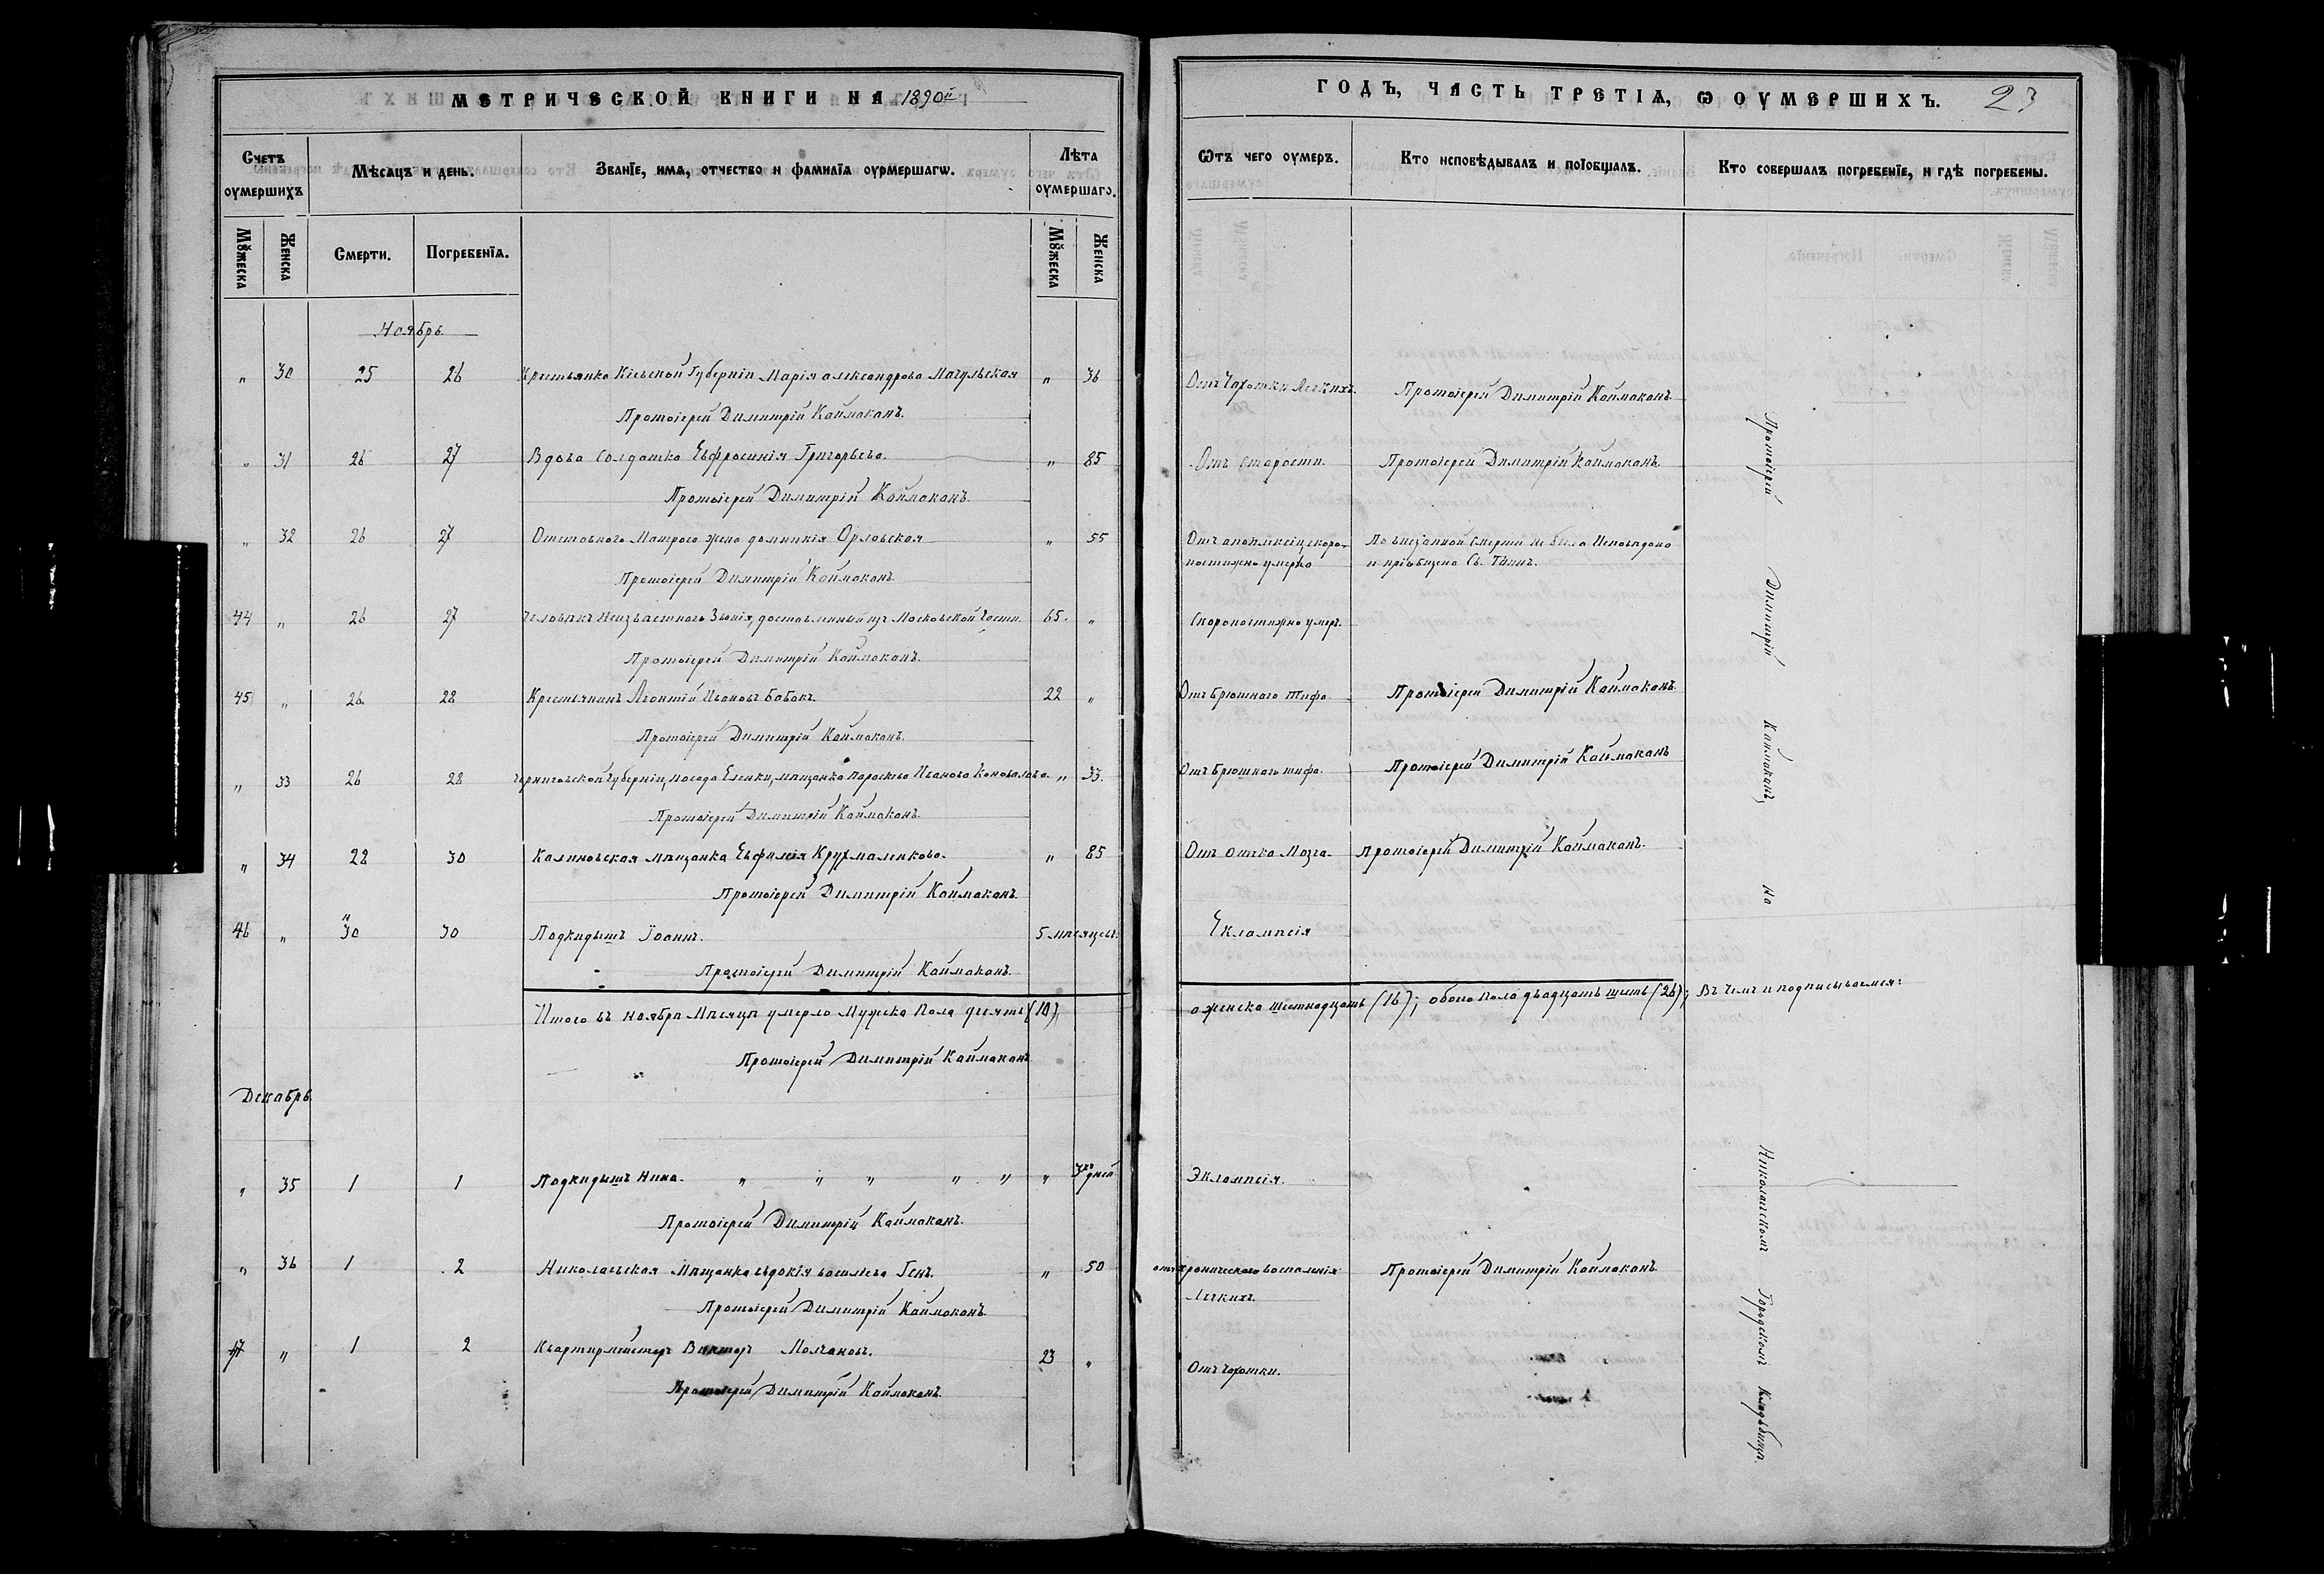 МЕТРИЧЕСКОЙ КНИГИ НА 1890й
ГОДЪ, ЧАСТЬ ТРЕТІѦ, Ѡ ОУМЕРШИХЪ. 23
Счетъ оумершихъ
Мѣсѧцъ и день.
Званїе, имѧ, отчество и фамилїѧ оурмершагѡ.
Лѣта оумершаго.
Ѿтъ чего оумеръ.
Кто исповѣдывалъ и поїобщалъ.
Кто совершалъ погребенїе, и гдѣ погребены.
Мꙋжеска
Женска
Смерти.
Погребенїѧ.
Мꙋжеска
Женска
Ноябрь
" 30 25 26 Крестьянка Кіевской Губерніи Марія Александрова Магульская " 36 Отъ Чахотки Легкихъ. Протоіерей Димитрій Каймаканъ
Протоіерей Димитрій Каймаканъ.
" 31 26 27 Вдова Солдатка Евфросинія Григорьева. " 85 Отъ Старости. Протоіерей Димитрій Каймаканъ
Протоіерей Димитрій Каймаканъ.
" 32 26 27 Отставного Матроса жена Домникія Орловская " 55 Отъ апоплексіи скоро- По внезапной смерти не была Исповѣдана
постижно умерла и пріобщена Св. Таинъ.
Протоіерей Димитрій Каймаканъ.
44 " 26 27 Человѣкъ Неизвѣстнаго Званія, доставленный изъ Московской Части 65. " Скоропостижно умеръ.
Протоіерей Димитрій Каймаканъ.
45 " 26 28 Крестьянинъ Леонтій Ивановъ Бабакъ. 22 " Отъ брюшного Тифа Протоіерей Димитрій Каймаканъ
Протоіерей Димитрій Каймаканъ.
" 33 26 28 Черниговской Губерніи, посада Еленки, мѣщанка Параскева Иванова Коновалова " 33. Отъ Брюшного тифа. Протоіерей Димитрій Каймаканъ
Протоіерей Димитрій Каймаканъ.
" 34 28 30 Калиновская мѣщанка Евфимія Крухмаленкова. " 85 Отъ Отека Мозга. Протоіерей Димитрій Каймаканъ.
Протоіерей Димитрій Каймаканъ.
46 " 30 30 Подкидышъ Іоаннъ. 5 мѣсяцевъ. Еклампсія
Протоіерей Димитрій Каймаканъ.
Итого въ ноябрѣ Мѣсяцѣ умерло Мужска Пола десять (10),
а женска шестнадцать (16); обоего Пола двадцать шесть (26); Въ чемъ и подписываемся:
Протоіерей Димитрій Каймаканъ
Декабрь.
" 35 1 1 Подкидышъ Нина. " " " " " " 3хъ дней Эклампсія.
Протоіерей Димитрій Каймаканъ.
" 36 1 2 Николаевская Мѣщанка Евдокія Васильева Генъ. " 50 отъ хроническаго воспаленія Протоіерей Димитрій Каймаканъ.
Легкихъ.
Протоіерей Димитрій Каймаканъ.
47 " 1 2 Квартирмейстеръ Викторъ Молчановъ. 23 " Отъ Чахотки.
Протоіерей Димитрій Каймаканъ.
Протоіерей Димитрій Каймаканъ, на Николаевскомъ Городскомъ Кладбищѣ.